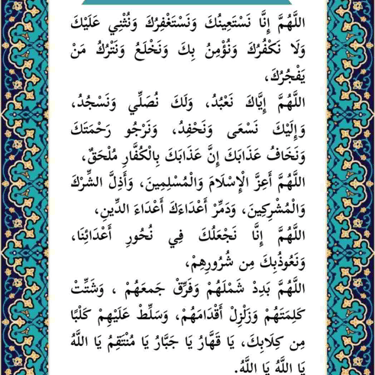 اللَّهُمَّ إِنَّا نَسْتَعِينُكَ وَنَسْتَغْفِرُكَ وَنُثْنِي عَلَيْكَ
وَلَا نَكْفُرُكَ وَنُؤْمِنُ بِكَ وَنَخْلَعُ وَنَتْرُكُ مَنْ
يَفْجُرُكَ،
اللَّهُمَّ إِيَّاكَ نَعْبُدُ، وَلَكَ نُصَلِّي وَنَسْجُدُ،
وَإِلَيْكَ نَسْعَى وَنَحْفِدُ، وَنَرْجُو رَحْمَتَكَ
وَنَخَافُ عَذَابَكَ إِنَّ عَذَابَكَ بِالْكُفَّارِ مُلْحَقٌ،
اللَّهُمَّ أَعِزَّ الْإِسْلَامَ وَالْمُسْلِمِينَ، وَأَذِلَّ الشِّرْكَ
وَالْمُشْرِكِينَ، وَدَمِّرْ أَعْدَاءَكَ أَعْدَاءَ الدِّينِ،
اللَّهُمَّ إِنَّا نَجْعَلُكَ فِي نُحُورِ أَعْدَائِنَا،
وَنَعُوذُبِكَ مِن شُرُورِهِمْ،
اللَّهُمَّ بَدِدْ شَمْلَهُمْ وَفَرِّقْ جَمعَهُمْ ، وَشَتِّتْ
كَلِمَتَهُمْ وَزَلْزِلْ أَقْدَامَهُمْ، وَسَلِّطْ عَلَيْهِمْ كَلْبًا
مِن كِلَابِكَ، يَا قَهَّارُ يَا جَبَّارُ يَا مُنْتَقِمُ يَا اللَّهُ
يَا اللَّهُ يَا اللَّهُ.